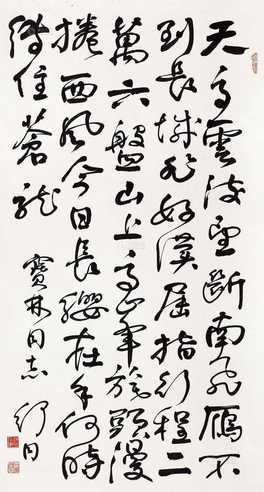 天高雲淡望斷南飛雁不
到長城非好漢屈指行程二
萬六盤山上高峯旄頭漫
捲西風今日長纓在手何時
縛住蒼龍
寶林同志
舒同